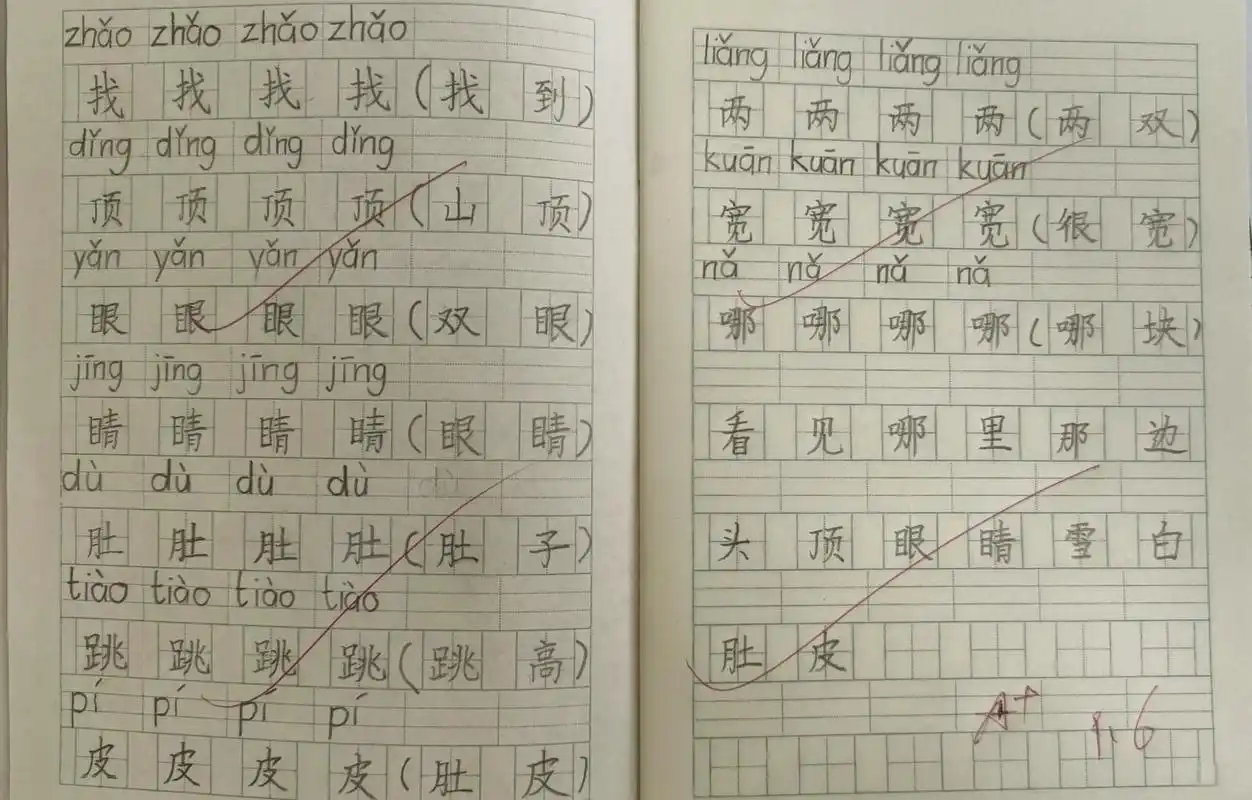 zhǎo zhǎo zhǎo zhǎo
找 找 找 找 (找 到)
dǐng dǐng dǐng dǐng
顶 顶 顶 顶 (山 顶)
yǎn yǎn yǎn yǎn
眼 眼 眼 眼 (双 眼)
jīng jīng jīng jīng
睛 睛 睛 睛 (眼 睛)
dù dù dù dù dù
肚 肚 肚 肚 (肚 子)
tiào tiào tiào tiào
跳 跳 跳 跳 (跳 高)
pí pí pí pí
皮 皮 皮 皮 (肚 皮)
liǎng liǎng liǎng liǎng
两 两 两 两 (两 双)
kuān kuān kuān kuān
宽 宽 宽 宽 (很 宽)
nǎ nǎ nǎ nǎ
哪 哪 哪 哪 (哪 块)
看 见 哪 里 那 边
头 顶 眼 睛 雪 白
肚 皮
A+ 1.6